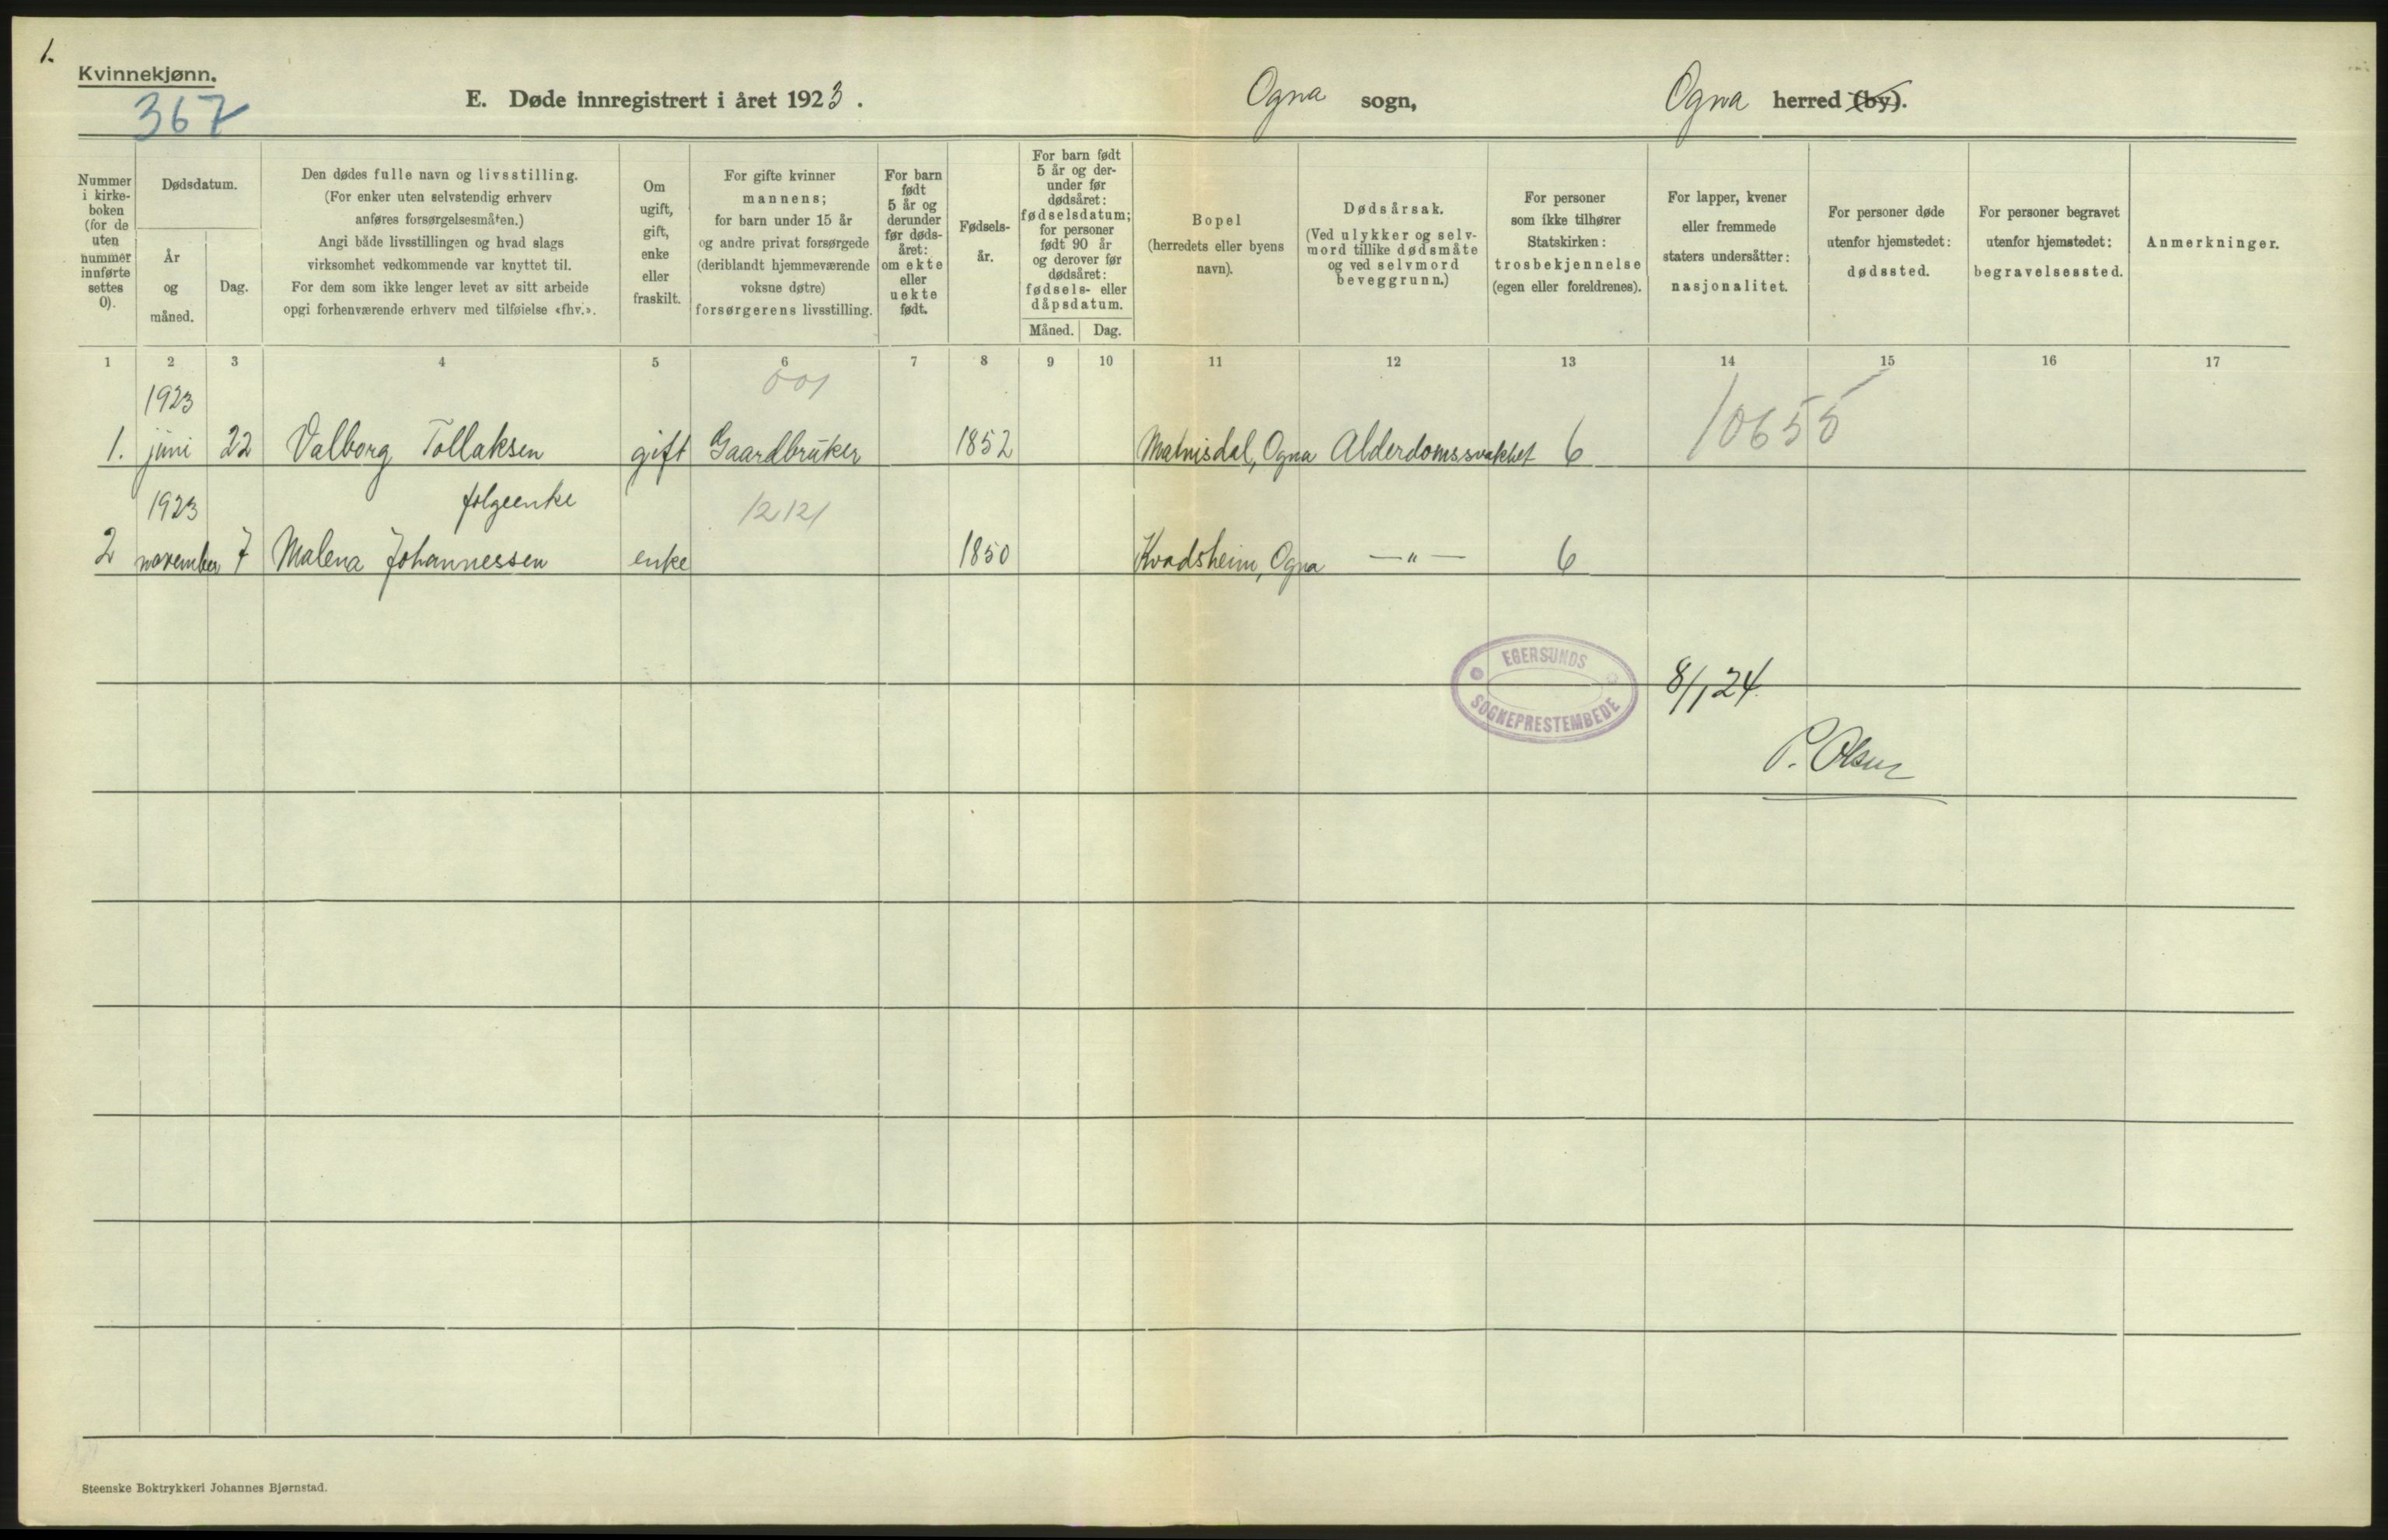 1.
Kvinnekjønn.
367
E. Døde innregistrert i året 1923.
Ogna sogn,
Ogna herred (by).
Nummer
i kirke-
boken
(for de
uten
nummer
innførte
settes
0).
Dødsdatum.
År
og
måned.
Dag.
Den dødes fulle navn og livsstilling.
(For enker uten selvstendig erhverv
anføres forsørgelsesmåten.)
Angi både livsstillingen og hvad slags
virksomhet vedkommende var knyttet til.
For dem som ikke lenger levet av sitt arbeide
opgi forhenværende erhverv med tilføielse «fhv.».
Om
ugift,
gift,
enke
eller
fraskilt.
For gifte kvinner
mannens;
for barn under 15 år
og andre privat forsørgede
(deriblandt hjemmeværende
voksne døtre)
forsørgerens livsstilling.
For barn
født
5 år og
derunder
før døds-
året:
om ekte
eller
uekte
født.
Fødsels-
år.
For barn født
5 år og der-
under før
dødsåret:
fødselsdatum;
for personer
født 90 år
og derover før
dødsåret:
fødsels- eller
dåpsdatum.
Måned. Dag.
Bopel
(herredets eller byens
navn).
Dødsårsak.
(Ved ulykker og selv-
mord tillike dødsmåte
og ved selvmord
beveggrunn.)
For personer
som ikke tilhører
Statskirken:
trosbekjennelse
(egen eller foreldrenes).
For lapper, kvener
eller fremmede
staters undersåtter:
nasjonalitet.
For personer døde
utenfor hjemstedet:
dødssted.
For personer begravet
utenfor hjemstedet:
begravelsessted.
Anmerkninger.
1 2 3 4 5 6 7 8 9 10 11 12 13 14 15 16 17
1923 001
1. juni 22 Valborg Tollaksen gift Gaardbruker 1852 Matnisdal, Ogna Alderdomssvakhet 6 10655
1923 følgeenke 12121
2 november 7 Malena Johannessen enke 1850 Kvadsheim, Ogna —"— 6
EGERSUNDS
SOGNEPRESTEMBEDE
8/1 24.
P. Olsen
Steenske Boktrykkeri Johannes Bjørnstad.